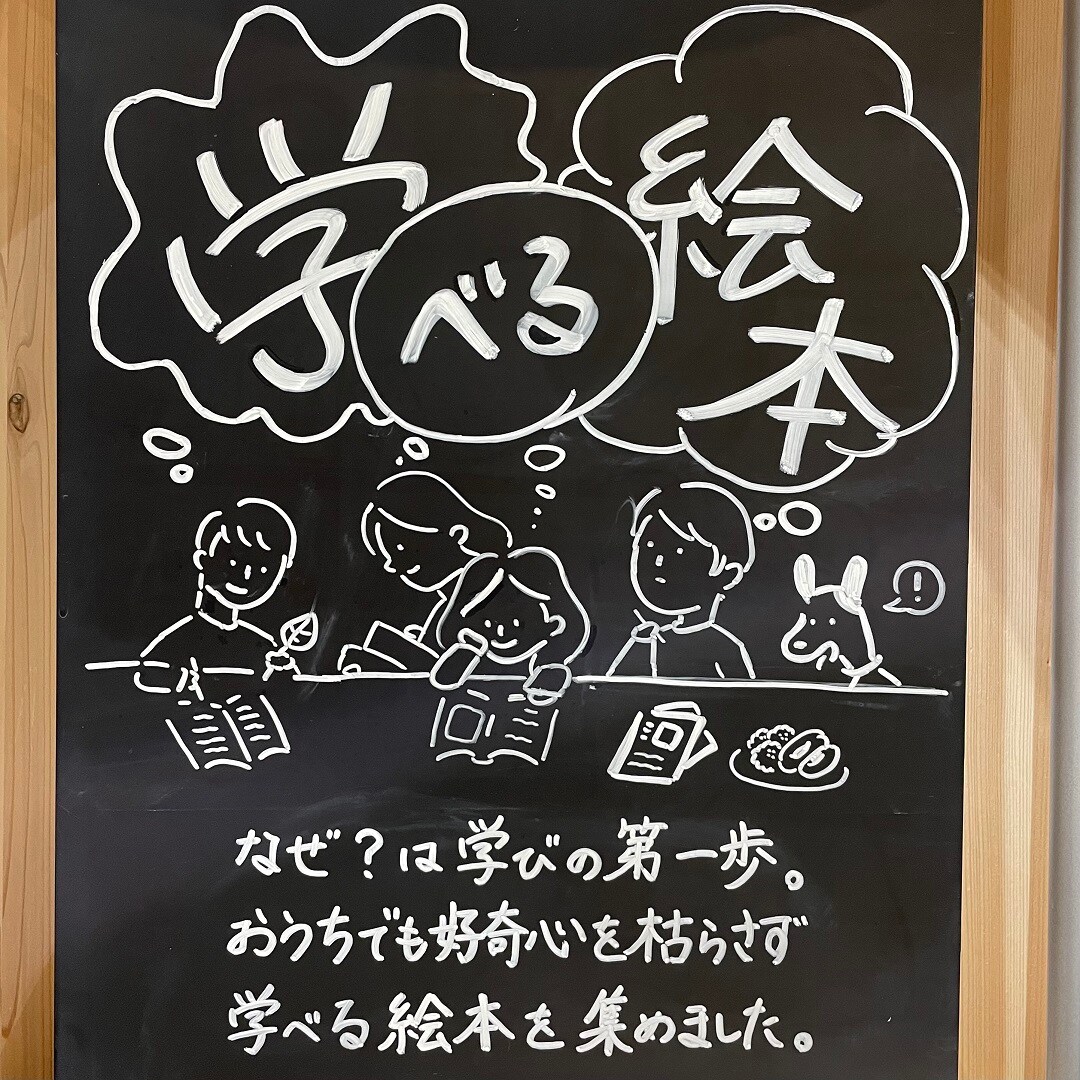 学べる絵本
!
なぜ？は学びの第一歩。
おうちでも好奇心を枯らさず
学べる絵本を集めました。